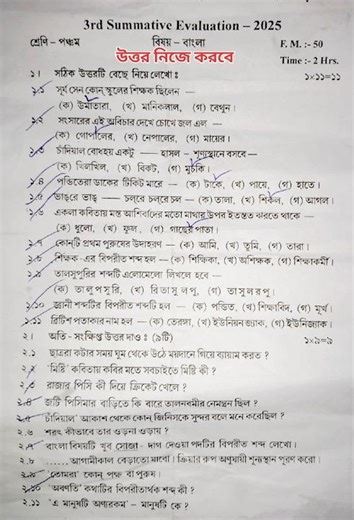 3rd Summative Evaluation – 2025
শ্রেণি - পঞ্চম বিষয় – বাংলা F. M.: -50
উত্তর নিজে করবে
Time :- 2 Hrs.
১। সঠিক উত্তরটি বেছে নিয়ে লেখোঃ ১x১১=১১
১.১ সূর্য সেন কোন্ স্কুলের শিক্ষক ছিলেন —
(ক) উমাতারা, (খ) মানিকলাল, (গ) বেথুন।
১.২ সংসারের এই অবিচার দেখে চোখে জল এল —
(ক) গোপালের, (খ) নেপালের, (গ) মায়ের।
১.৩ চাঁদিয়াল বোধহয় একটু — হাসল - শূন্যস্থানে বসবে —
(ক) খিলখিল, (খ) বিকট, (গ) মুচকি।
১.৪ পন্ডিতেরা ডাকের টিকিট মারে — (ক) টাকে, (খ) পায়ে, (গ) হাতে।
১.৫ ভাঙরে ভাঙ্ — চলরে চলরে চল - (ক) তালা, (খ) শিকল, (গ) আগল।
১.৬ একলা কবিতায় মস্ত আশির্বাদের মতো মাথার উপর ইতস্তত ঝরতে থাকে —
(ক) ধুলো, (খ) ফুল, (গ) গাছের পাতা।
১.৭ কোন্‌টি প্রথম পুরুষের উদাহরণ — (ক) আমি, (খ) তুমি, (গ) তারা।
১.৮ শিক্ষক -এর বিপরীত শব্দ হল — (ক) শিক্ষিকা, (খ) অশিক্ষক, (গ) শিক্ষাকর্মী।
১.৯ তালসুপুরির শব্দটি এলোমেলো লিখলে হবে —
(ক) তালুপসুরি, (খ) রিতাসুলপু, (গ) তাসুলরপু।
১.১০ জ্ঞানী শব্দটির বিপরীত শব্দটি হল — (ক) পন্ডিত, (খ) শিক্ষাবিদ, (গ) মূর্খ।
১.১১ ব্রিটিশ পতাকার নাম হল — (ক) তেরঙ্গা, (খ) ইউনিয়ন জ্যাক, (গ) ইউনিজ্যাক।
২। অতি - সংক্ষিপ্ত উত্তর দাও : (৯টি) ১x৯=৯
২.১ ছাত্ররা কটার সময় ঘুম থেকে উঠে ময়দানে গিয়ে ব্যায়াম করত ?
২.২ 'মিষ্টি' কবিতায় কবির মতে সবচাইতে মিষ্টি কী ?
২.৩ রাজার পিসি কী দিয়ে ক্রিকেট খেলে ?
২.৪ জটি পিসিমার বাড়িতে কি বারে তালনবমীর নেমন্তন্ন ছিল ?
২.৫ চাঁদিয়াল' আকাশ থেকে কোন্ জিনিসকে সুন্দর বলে মনে করেছিল ?
২.৬ শরৎ কীভাবে তার ওড়না ওড়ায় ?
২.৭ বাংলা বিষয়টি খুব সোজা - দাগ দেওয়া পদটির বিপরীত শব্দ লেখো।
২.৮ ......আগামীকাল বেড়াতে যাবো। ক্রিয়ার রূপ অনুযায়ী শূন্যস্থান পূরণ করো।
২.৯ 'তোমরা' কোন্ পক্ষ বা পুরুষ।
২.১০ 'অবণতি' কথাটির বিপরীতার্থক শব্দ কী ?
২.১১ 'এ মানুষটি অণ্যরকম' – মানুষটি কে ?